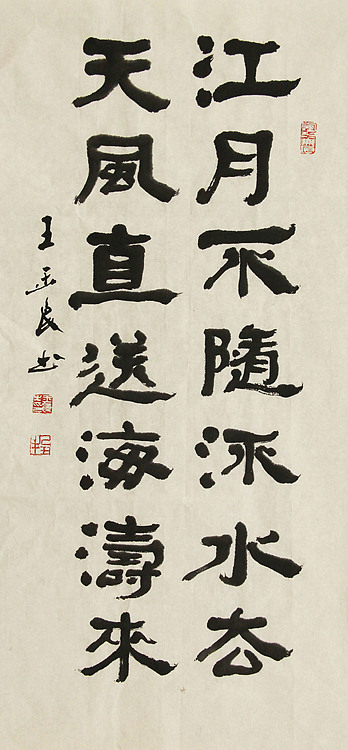 江月不隨流水去
天風直送海濤來
王 书